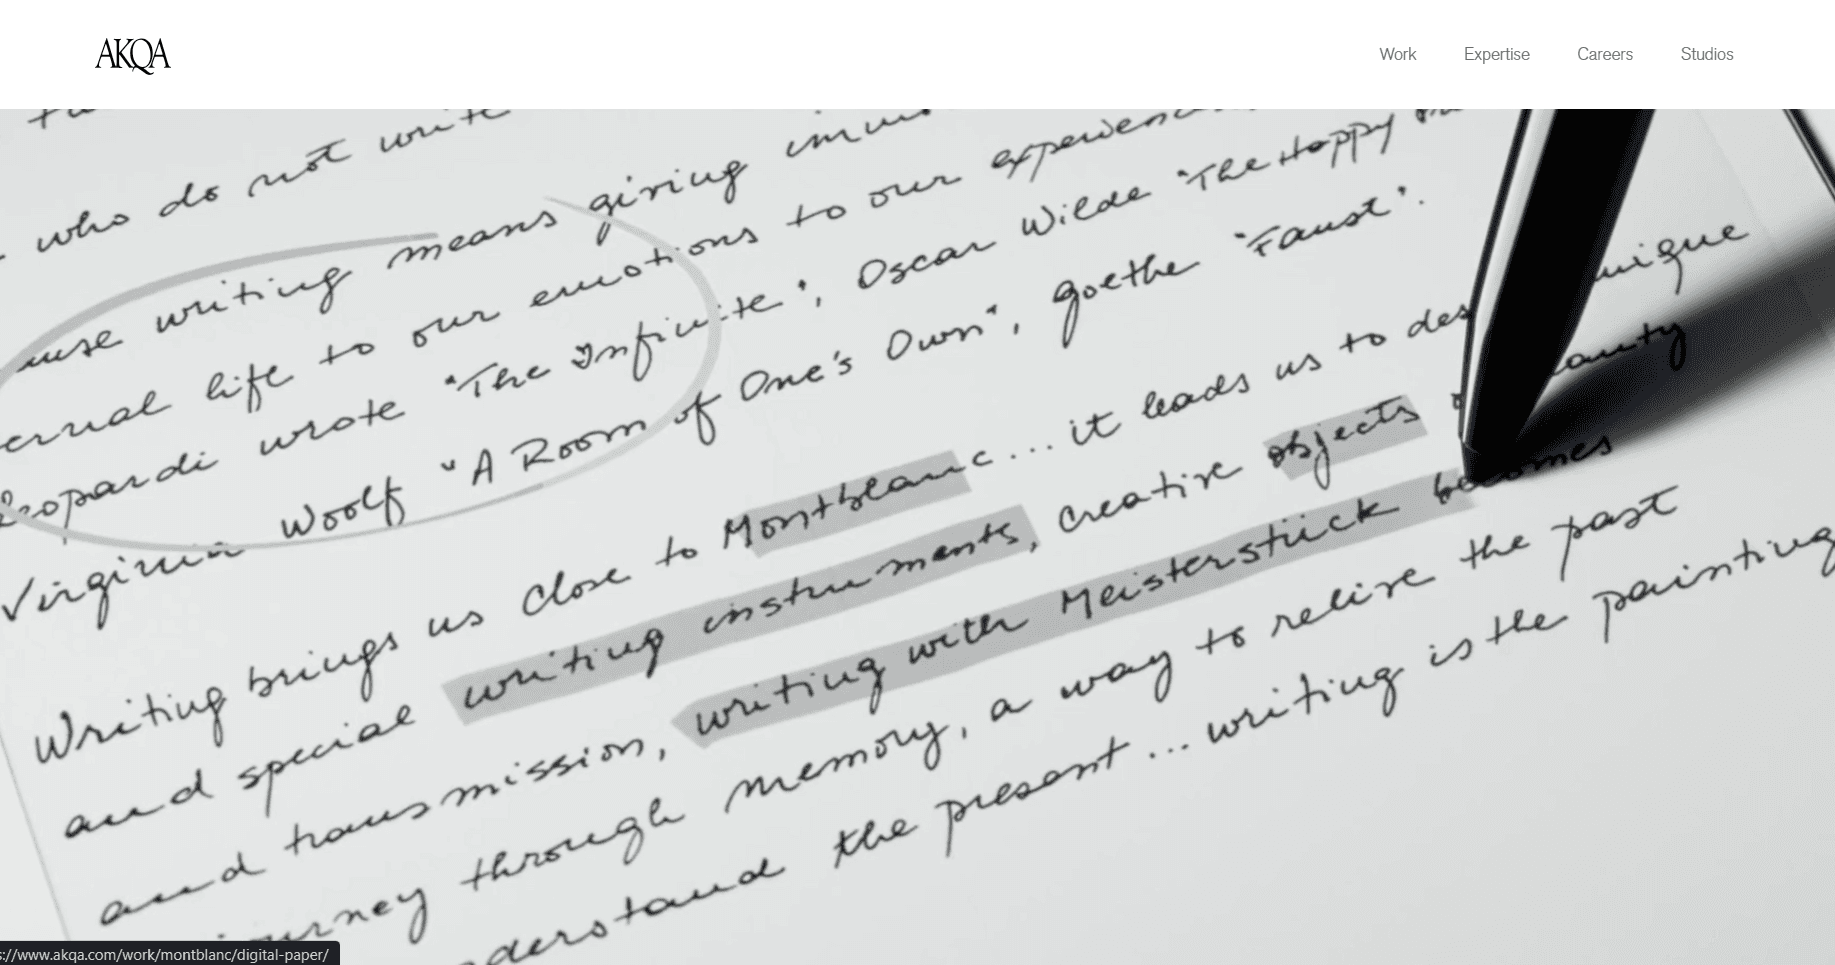 AKQA
Work Expertise Careers Studios
who do not write
writing means giving
ernal life to our emotions to our
Leopardi wrote "The Infinite", Oscar Wilde "The Happy
Virginia Woolf "A Room of One's Own", Goethe "Faust".
Writing brings us close to Montblanc... it leads us to
and special writing instruments, creative objects
and transmission, writing with Meisterstück becomes
through memory, a way to relive the past
derstand the present... writing is the painting
s://www.akqa.com/work/montblanc/digital-paper/